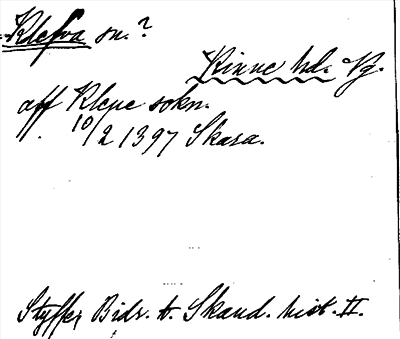 Klefva sn.?
Kinne hd. Vg.
aff Klepe sokn.
10/2 1397 Skara.
Styffe, Bidr. t. Skand. hist. II.